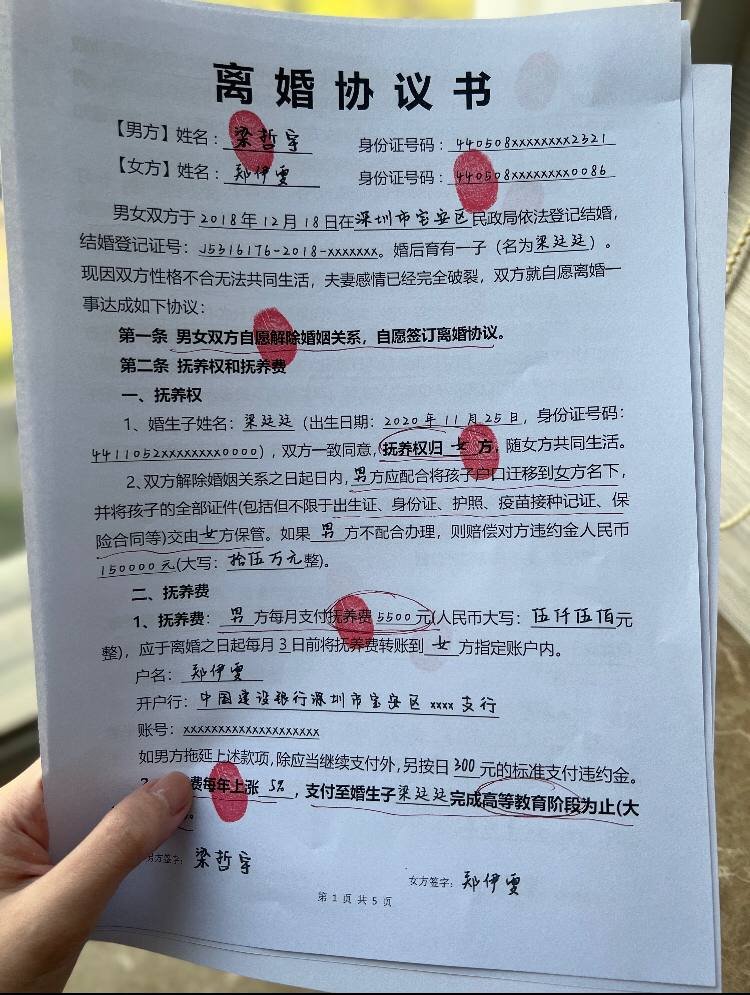 离婚协议书
【男方】姓名：梁哲宇 身份证号码：440508xxxxxxxx2321
【女方】姓名：郑伊雯 身份证号码：440508xxxxxxxx0086
男女双方于2018年12月18日在深圳市宝安区民政局依法登记结婚，
结婚登记证号：J5316176-2018-xxxxxxx。婚后育有一子（名为梁廷廷）。
现因双方性格不合无法共同生活，夫妻感情已经完全破裂，双方就自愿离婚一
事达成如下协议：
第一条 男女双方自愿解除婚姻关系，自愿签订离婚协议。
第二条 抚养权和抚养费
一、抚养权
1、婚生子姓名：梁廷廷（出生日期：2020年11月25日，身份证号码：
4411052xxxxxxxx0000），双方一致同意，抚养权归女方，随女方共同生活。
2、双方解除婚姻关系之日起日内，男方应配合将孩子户口迁移到女方名下，
并将孩子的全部证件(包括但不限于出生证、身份证、护照、疫苗接种记证、保
险合同等)交由女方保管。如果男方不配合办理，则赔偿对方违约金人民币
150000元(大写：拾伍万元整)。
二、抚养费
1、抚养费：男方每月支付抚养费5500元(人民币大写：伍仟伍佰元
整)，应于离婚之日起每月3日前将抚养费转账到女方指定账户内。
户名：郑伊雯
开户行：中国建设银行深圳市宝安区xxxx支行
账号：xxxxxxxxxxxxxxxxxxx
如男方拖延上述款项，除应当继续支付外，另按日300元的标准支付违约金。
费每年上涨5%，支付至婚生子梁廷廷完成高等教育阶段为止(大
男方签字：梁哲宇
女方签字：郑伊雯
第 1 页 共 5 页